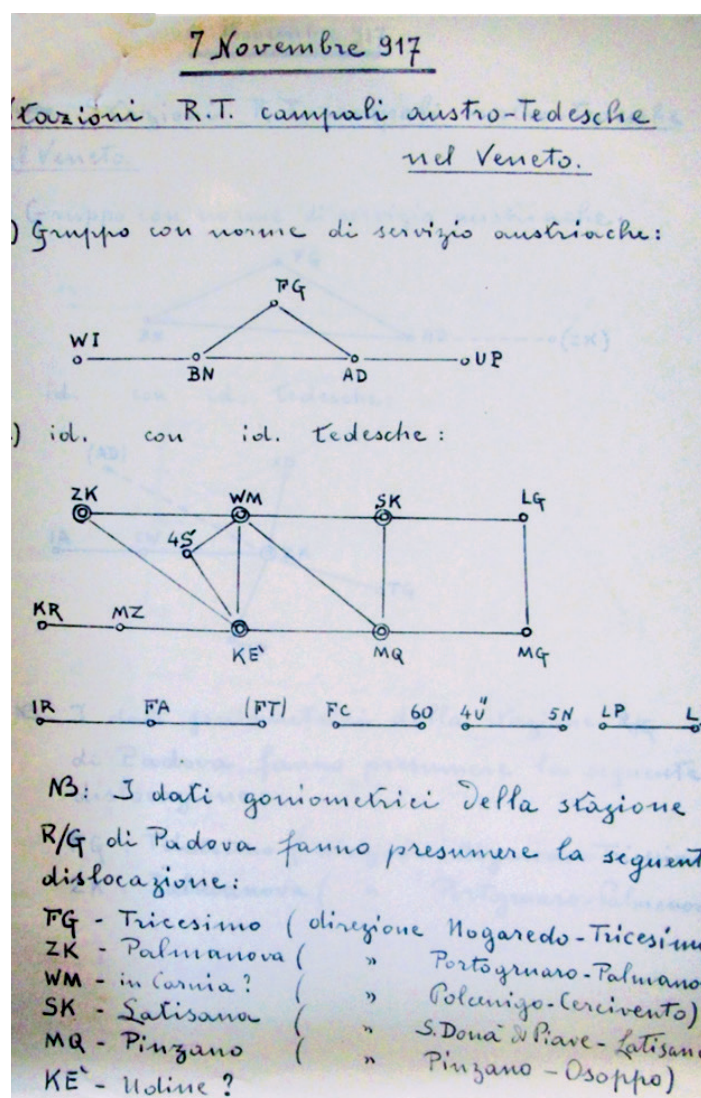 7 Novembre 917
Stazioni R.T. campali austro-Tedesche
nel Veneto.
) Gruppo con norme di servizio austriache:
FG
WI
BN AD
UP
) id. con id. Tedesche:
ZK WM SK LG
45
KR MZ
KE` MQ MG
IR FA (FT) FC 60 4U" 5N LP L
NB: I dati goniometrici della stazione
R/G di Padova fanno presumere la seguent
dislocazione:
FG - Tricesimo ( direzione Nogaredo-Tricesimo
ZK - Palmanova ( " Portogruaro-Palmano
WM - in Carnia? ( " Polcenigo-Cercivento)
SK - Latisana ( " S. Donà di Piave - Latisana
MQ - Pinzano ( " Pinzano - Osoppo)
KE` - Udine ?